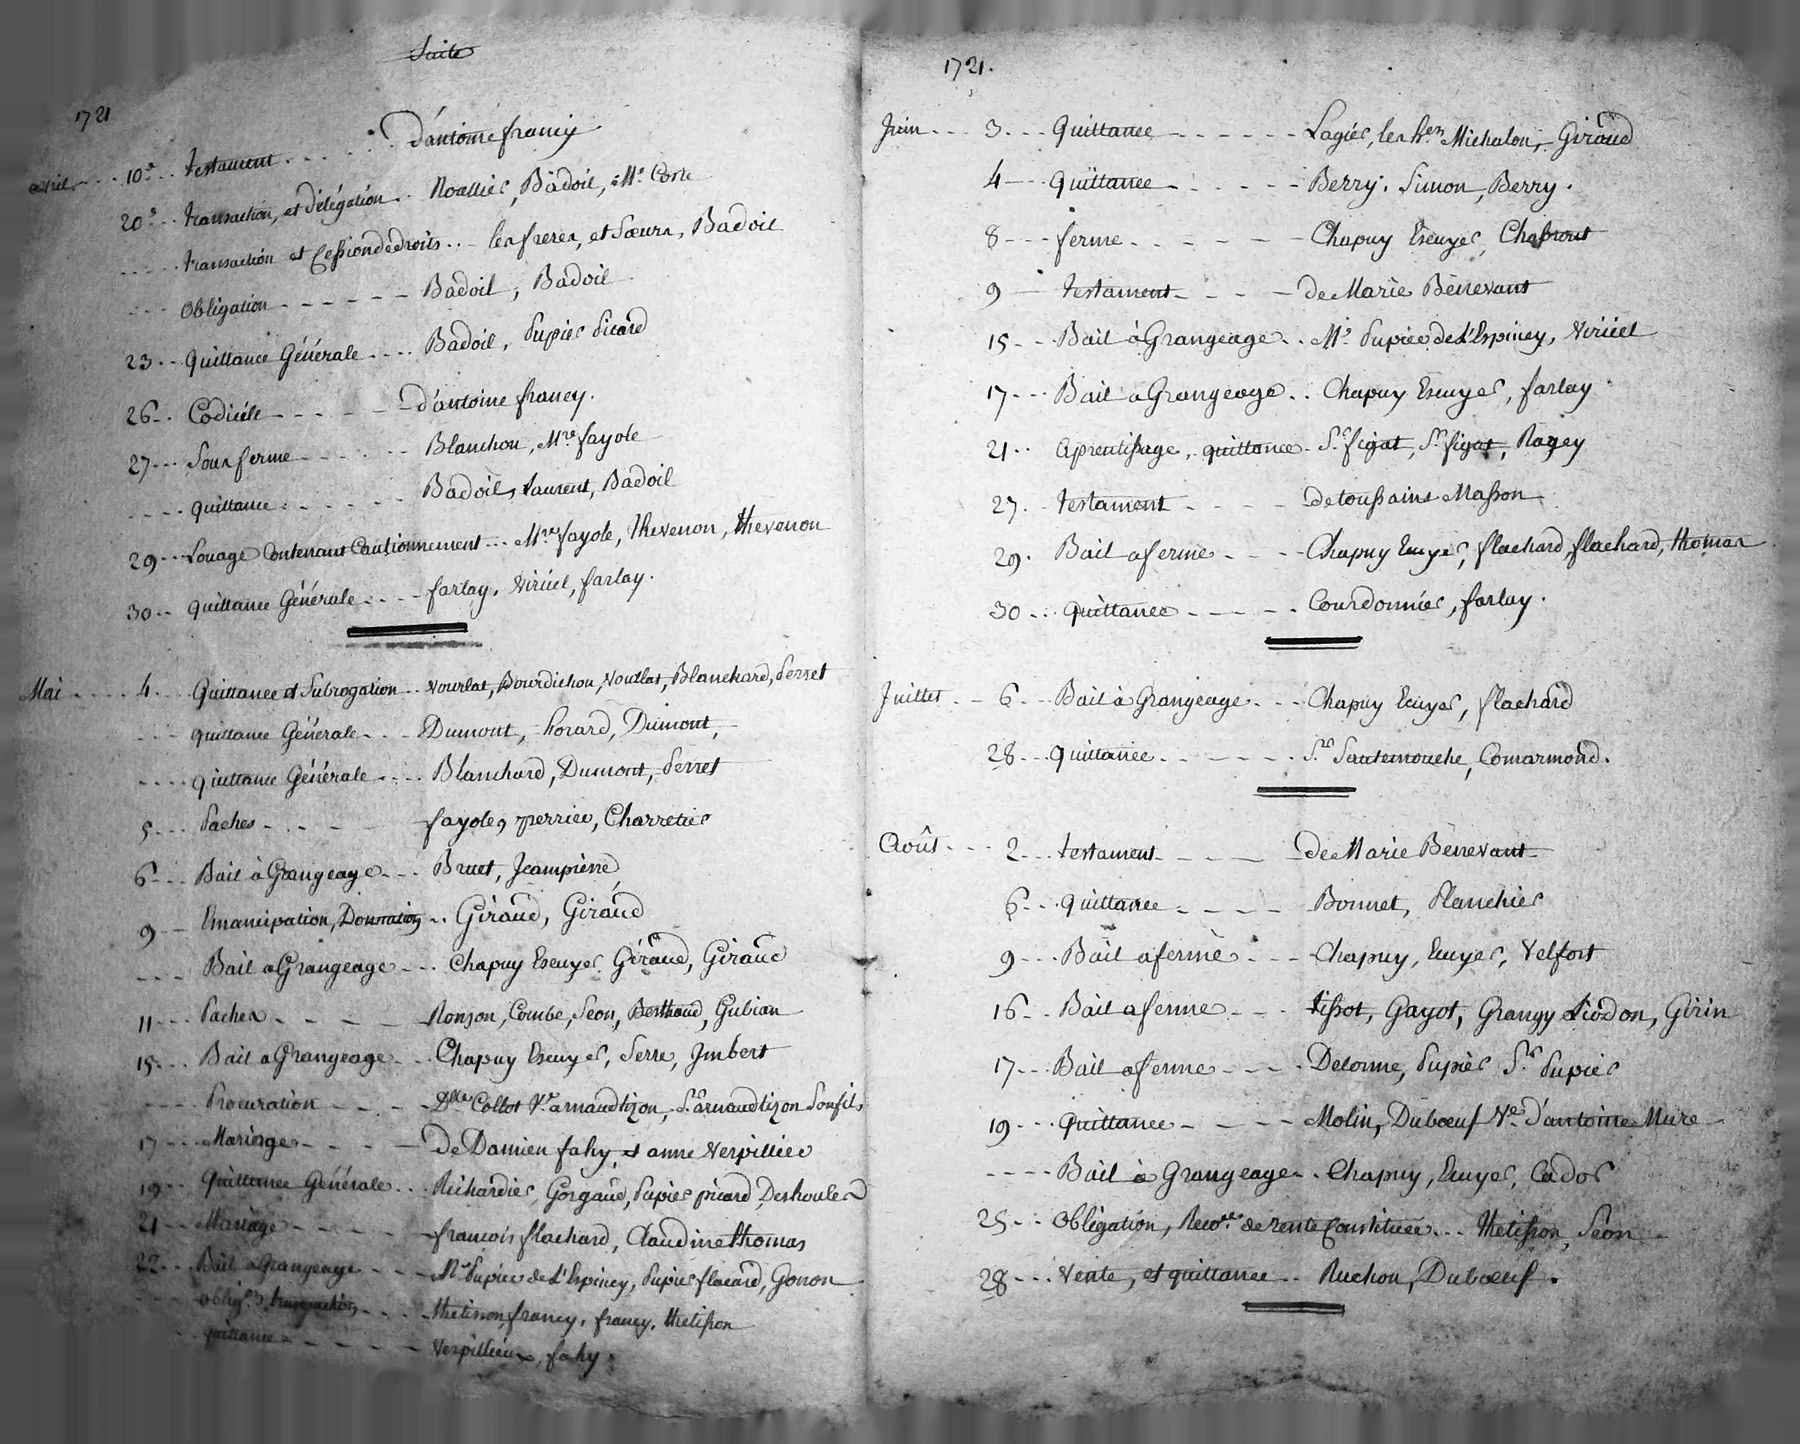 Suite
1721
avril 10e testament d'antoine francy
20e transaction, et délégation Noallier, Badoil, Me Corte
transaction et Cession dedroits les freres, et Sœurs, Badoil
obligation Badoil, Badoil
23 quittance Générale Badoil, Pupier Picard
26 Codicile d'antoine francy.
27 Sous ferme Blanchon, Mre fayole
quittance Badoil, Laurent, Badoil
29 Louage Contenant Cautionnement Mre fayole, thevenon, thevenon
30 quittance Générale farlay, Viriiel, farlay.
Mai 4 Quittance et Subrogation vourlat, Bourdichon, Vourlat, Blanchard, Serret
quittance Générale Dumont, Dumont,
quittance Générale Blanchard, Dumont, Serret
5 Paches fayole, perrier, Charretier
6 Bail à Grangeage Bruet, Jeampierre
9 Emancipation, Donnation Giraud, Giraud
Bail a Grangeage Chapuy Escuyer Giraud, Giraud
11 Paches Ronzon, Combe, Seon, Berthaud, Gubian
15 Bail a Grangeage Chapuy Escuyer, Serre, Jmbert
Procuration Dlle Collot Ve arnaudtizon, Sr arnaudtizon Son fils,
17 Mariage de Damien fahy, et anne Verpillier
19 Quittance Générale Richardier, Gorgaud, Pupier picard, Deshoules
21 Mariage francois flachard, Claudine thomas
22 Bail a Grangeage Me Pupier de L'Espiney, Pupier flacard, Gonon
transaction francy, francy, thetisson
quittance Verpillieux, fahy.
1721.
Juin 3 Quittance Lagier, les hers Michalon, Giraud
4 quittance Berry, Simon, Berry.
8 ferme Chapuy Escuyer, Chabrout
9 testament de Marie Bènevant
15 Bail à Grangeage Me Pupier de L'Espiney, Viriiel
17 Bail a Grangeage Chapuy Escuyer, farlay
21 Aprentissage, quittance Sr figat, Sr figat, Ragey
27 testament de toussains Masson
29 Bail a ferme Chapuy Ecuyer, flachard, flachard, thomas
30 quittance Courdonnier, farlay.
Juillet 6 Bail à Grangeage Chapuy Ecuyer, flachard
28 quittance Sr Sautemouche, Comarmond.
Août 2 testament de Marie Bènevant
6 quittance Bonnet, Planchier
9 Bail a ferme Chapuy, Ecuyer, Velfort
16 Bail a ferme tissot, Gayot, Grangy Liodon, Girin
17 Bail a ferme Delorme, Pupier Sr Pupier
19 quittance Molin, Dubœuf Ve d'antoine Mure
Bail à Grangeage Chapuy, Ecuyer, Cador
25 obligation, de rente Constituée thetisson, Séon
28 Vente, et quittance Ruchon, Dubœuf.